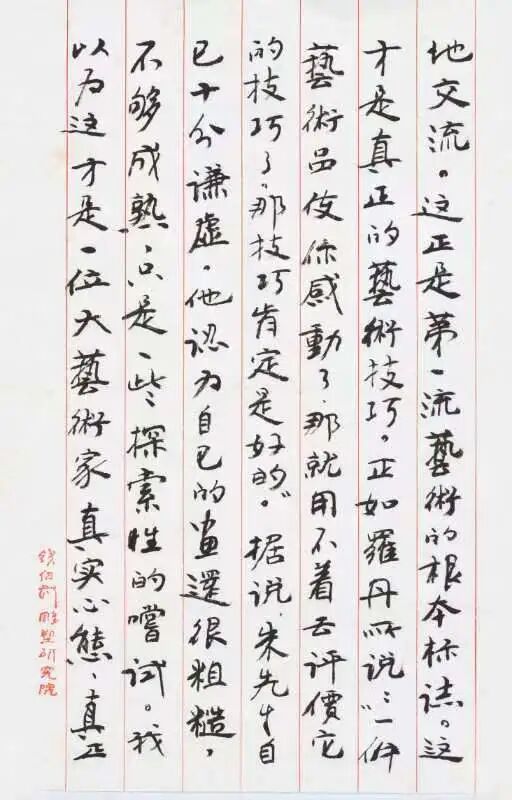 地交流。这正是第一流藝術的根本标誌。这
才是真正的藝術技巧。正如羅丹所说：“一件
藝術品使你感動了，那就用不着去评價它
的技巧了。那技巧肯定是好的。”据说，朱先生自
己十分谦虚，他认为自己的画還很粗糙，
不够成熟，只是一些探索性的嚐试。我
以为这才是一位大藝術家真实心態，真正
钱绍武雕塑研究院